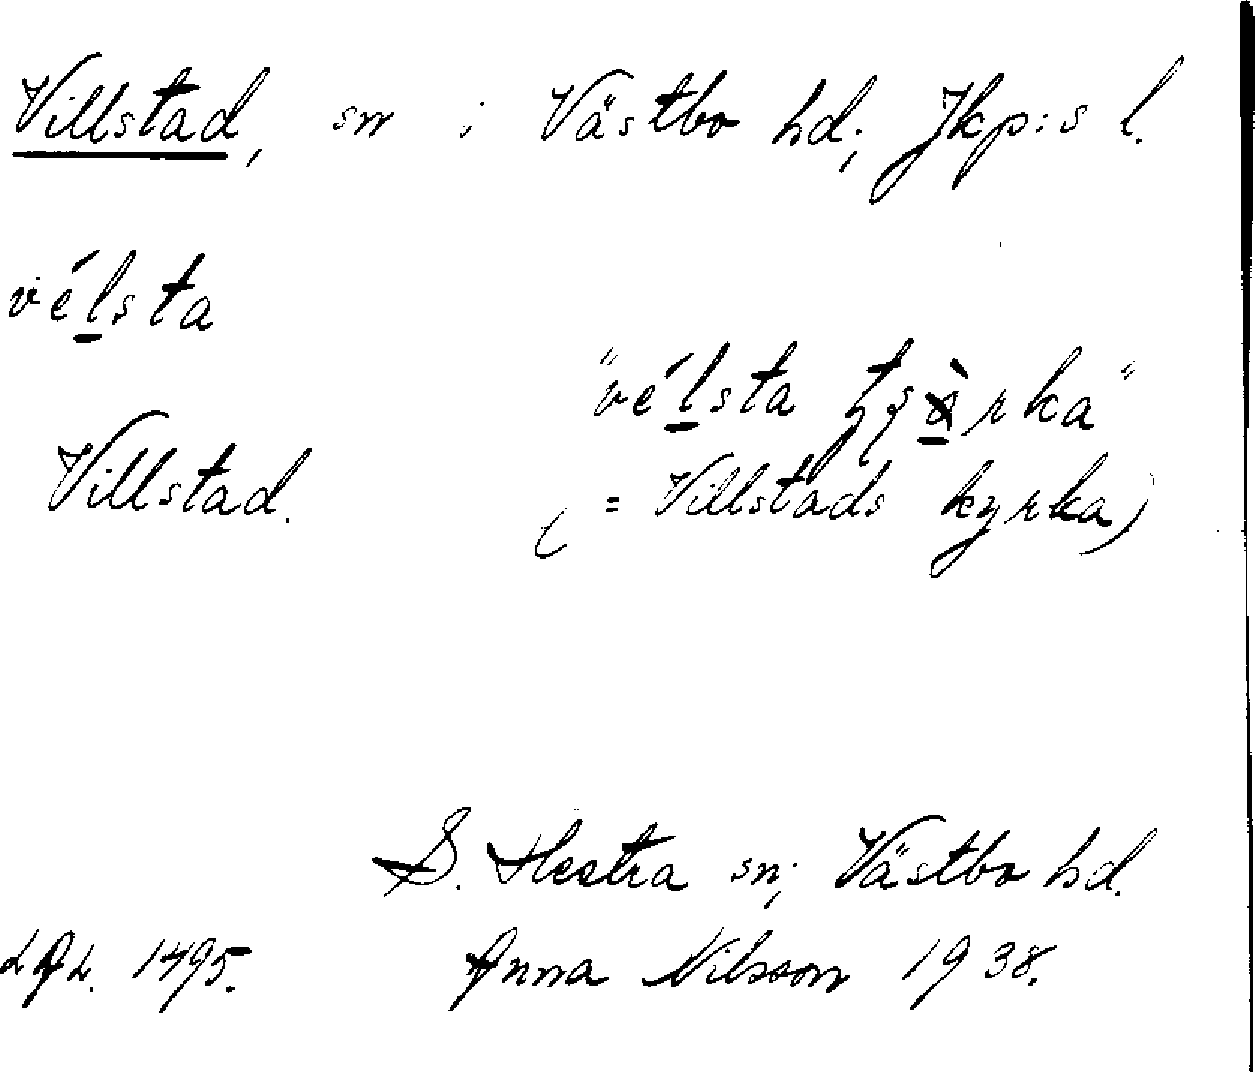 Villstad, sn i Västbo hd, Jkp:s l.
vélsta
"vélsta
Villstad.
(= Villstads kyrka)
S. Hestra sn, Västbo hd.
1495. Anna Nilsson 1938.